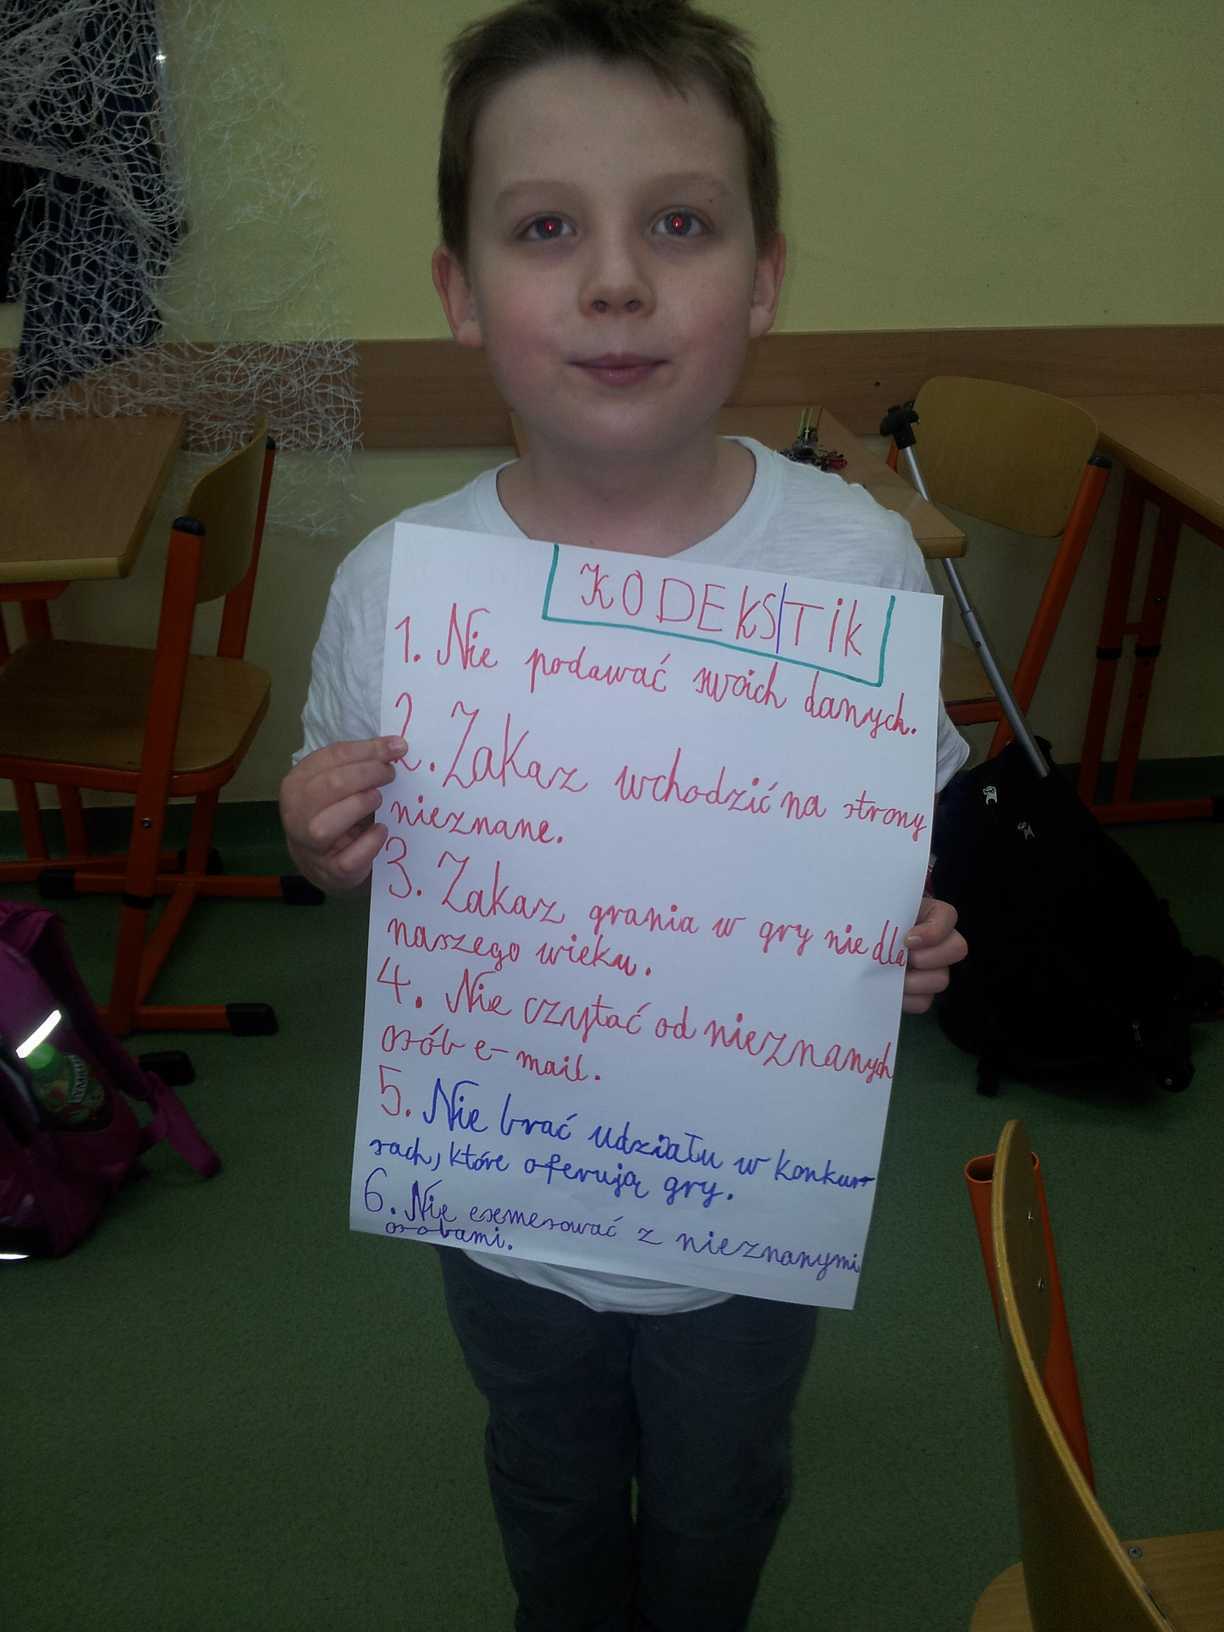 KODEKS|TiK
1. Nie podawać swoich danych.
2. Zakaz wchodzić na strony
nieznane.
3. Zakaz grania w gry nie dla
naszego wieku.
4. Nie czytać od nieznanych
osób e-mail.
5. Nie brać udziału w konkur-
sach, które oferują gry.
6. Nie esemesować z nieznanymi
osobami.